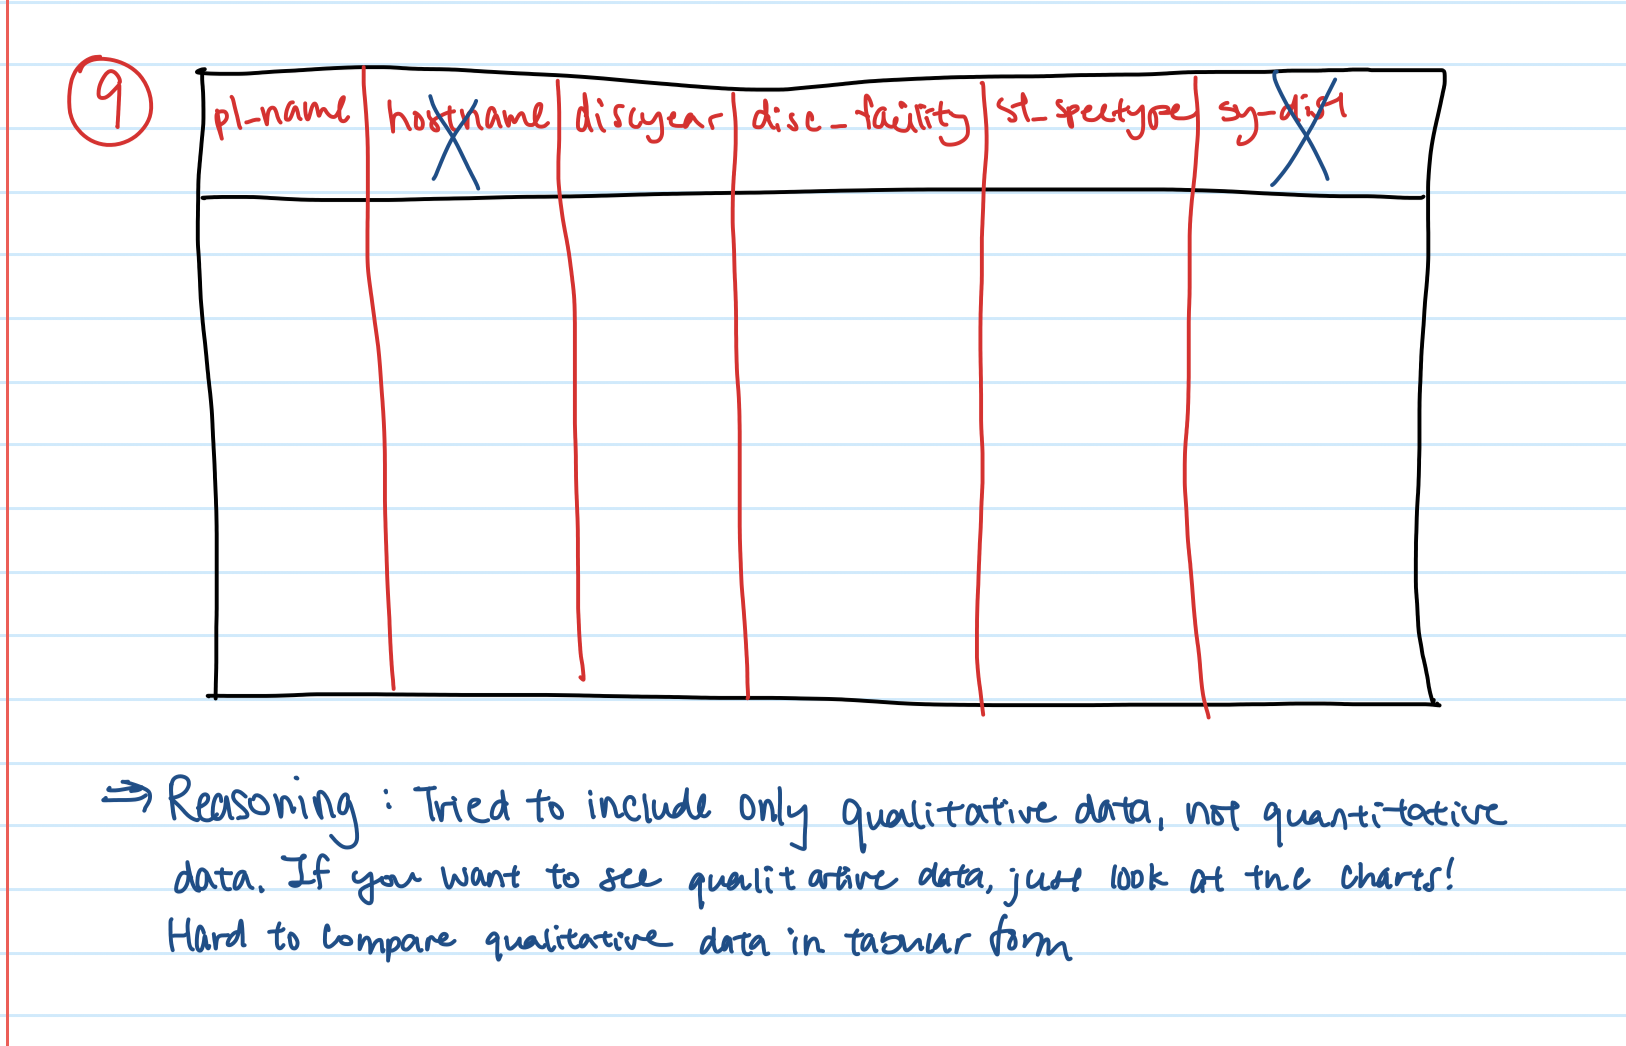 9
pl_name hostname discyear disc_facility st_spectype sy_dist
⇒ Reasoning : Tried to include only qualitative data, not quantitative
data. If you want to see qualitative data, just look at the charts!
Hard to compare qualitative data in tabular form